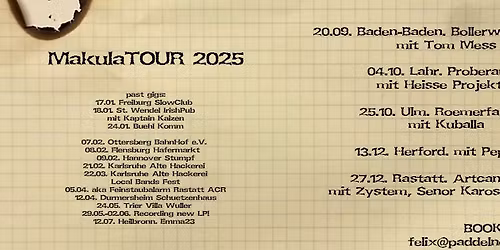 MakulaTOUR 2025
past gigs:
17.01. Freiburg SlowClub
18.01. St. Wendel IrishPub
mit Kaptain Kaizen
24.01. Buehl Komm
07.02. Ottersberg BahnHof e.V.
08.02. Flensburg Hafermarkt
09.02. Hannover Stumpf
21.02. Karlsruhe Alte Hackerei
22.03. Karlsruhe Alte Hackerei
Local Bands Fest
05.04. aka Feinstaubalarm Rastatt ACR
12.04. Durmersheim Schuetzenhaus
24.05. Trier Villa Wuller
29.05.-02.06. Recording new LP!
12.07. Heilbronn. Emma23
20.09. Baden-Baden. Bollerw
mit Tom Mess
04.10. Lahr. Probera
mit Heisse Projekt
25.10. Ulm. Roemerfa
mit Kuballa
13.12. Herford. mit Pep
27.12. Rastatt. Artcan
mit Zystem, Senor Karos
BOOK
felix@paddelb